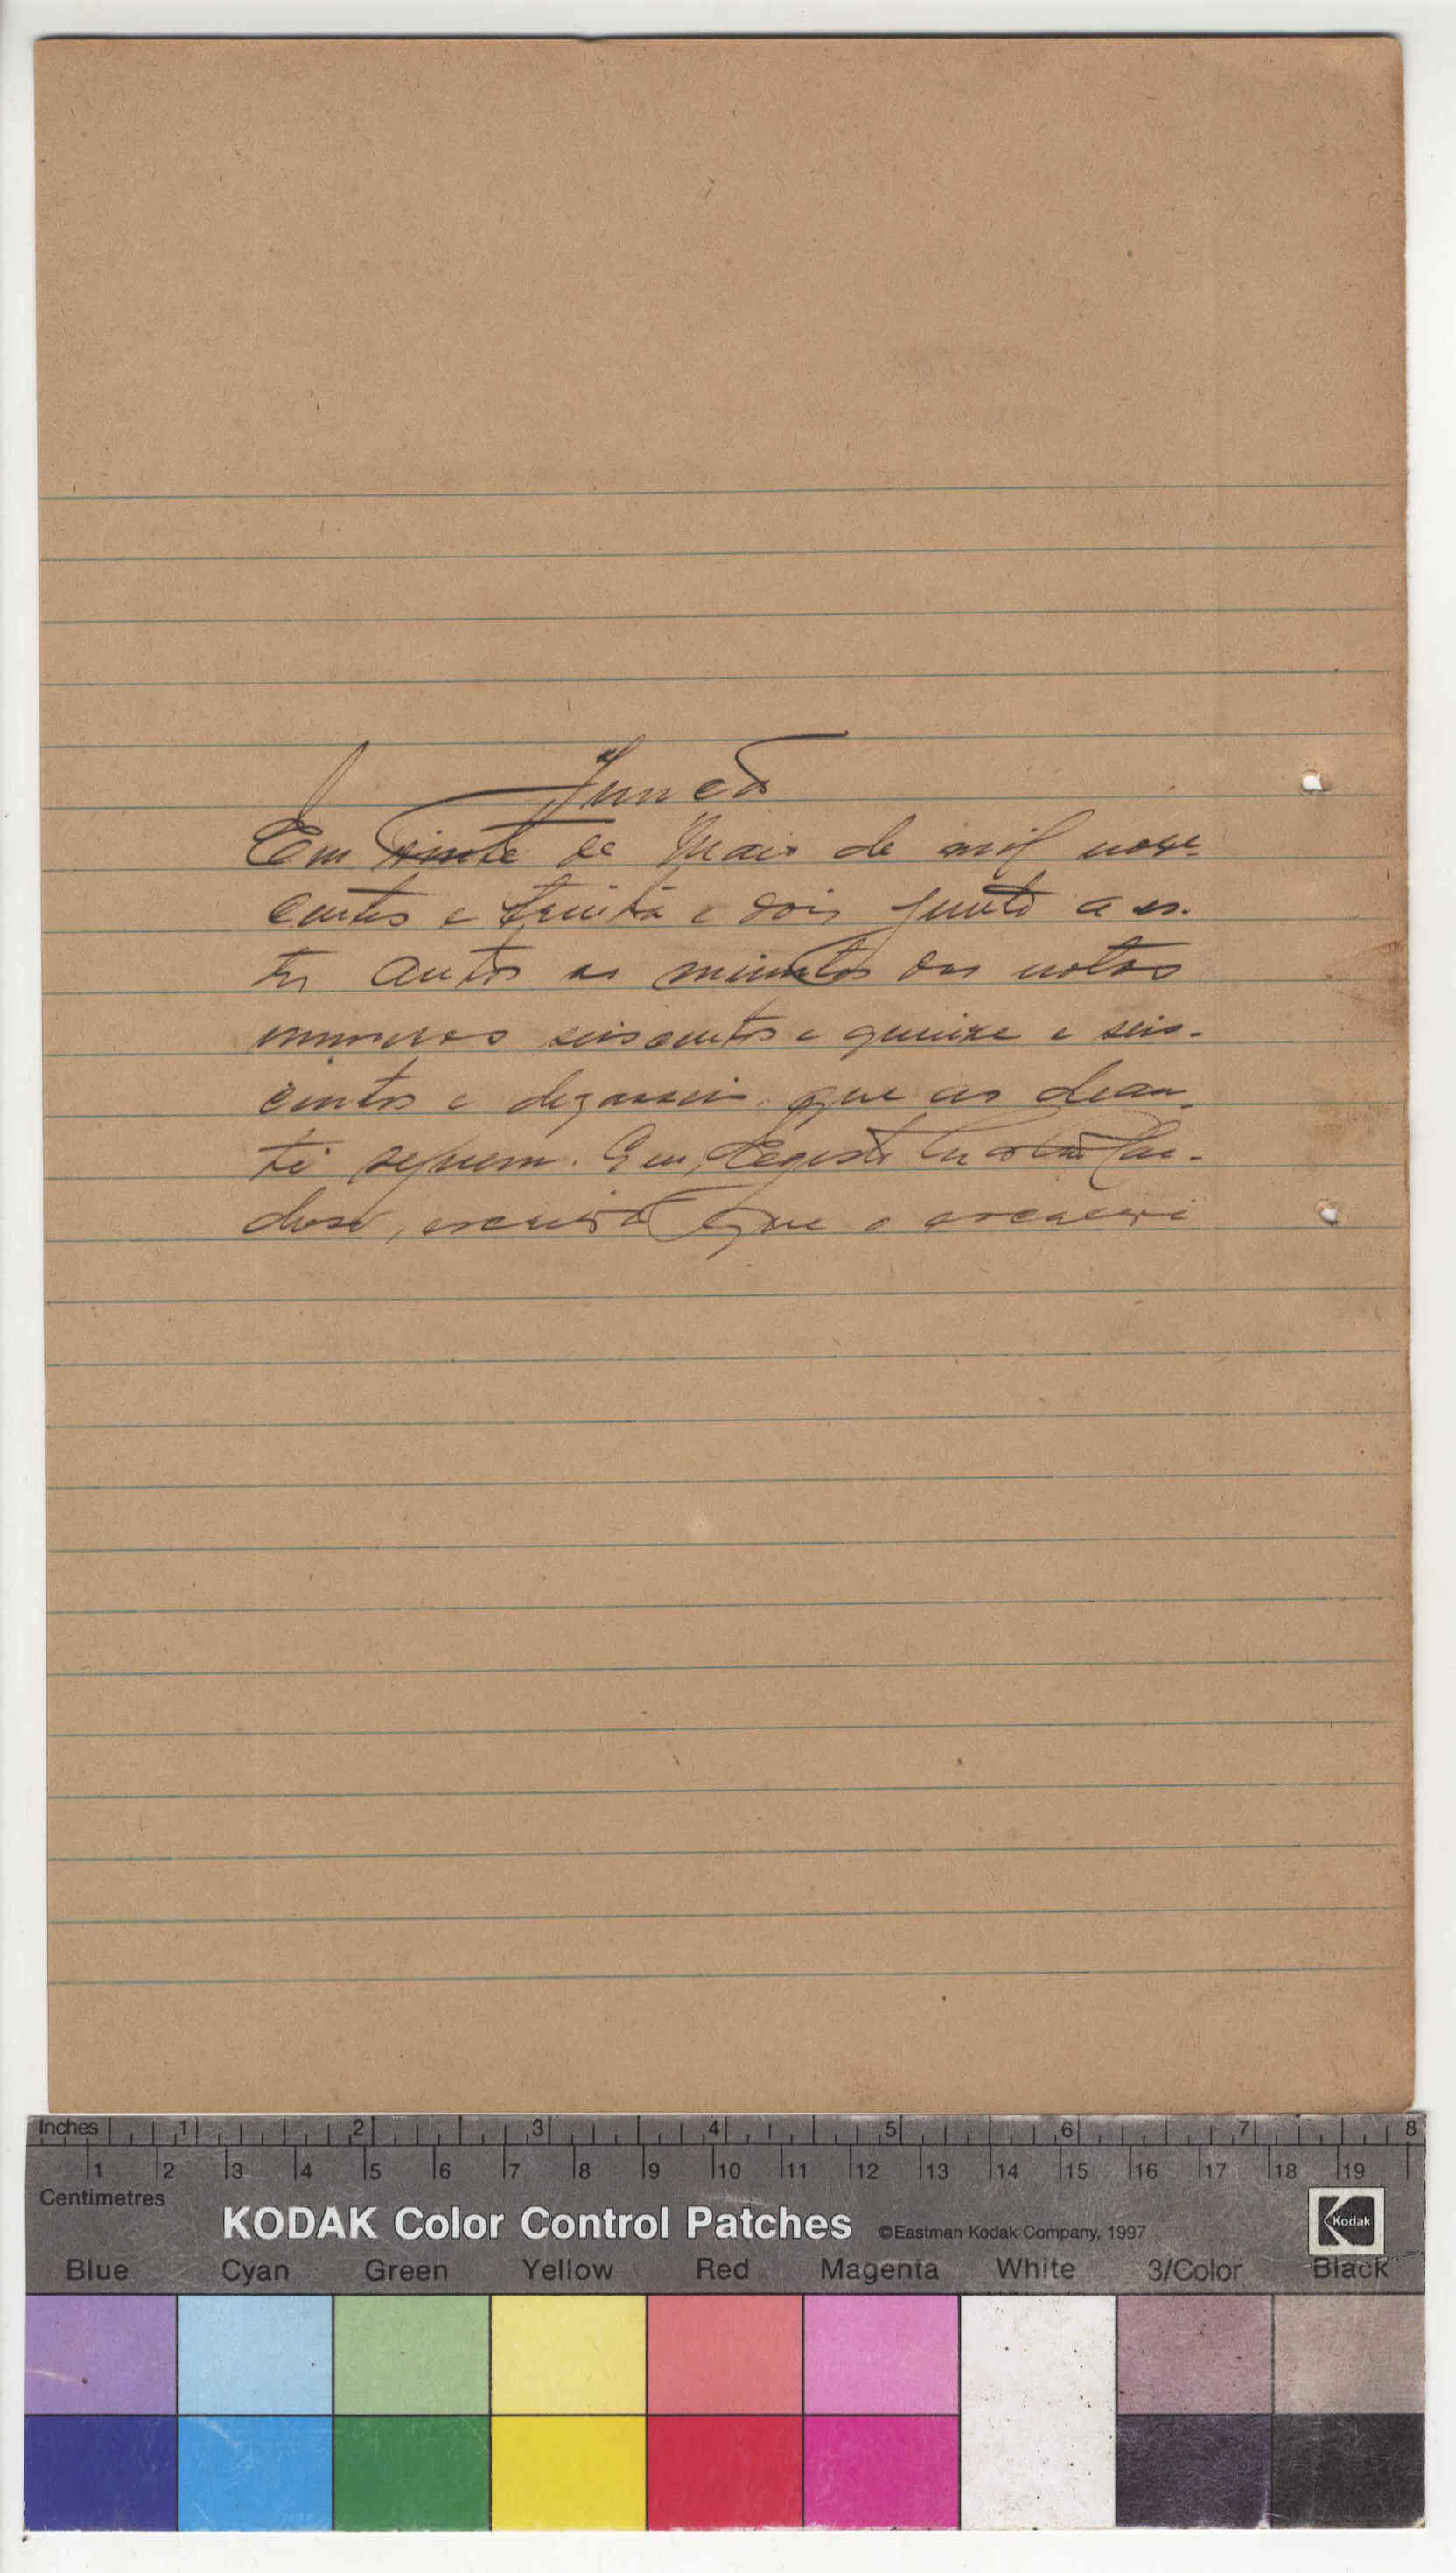 Juncta
Em vinte de Maio de mil nove-
centos e trinta e dois junto a es-
tes autos as minutas das notas
numeros seiscentos e quinze e seis-
centos e dezasseis que as dean-
te seguem. Eu,
escrivão que o escrevi
Inches 1 2 3 4 5 6 7 8
1 2 3 4 5 6 7 8 9 10 11 12 13 14 15 16 17 18 19
Centimetres
KODAK Color Control Patches ©Eastman Kodak Company, 1997 Kodak
Blue Cyan Green Yellow Red Magenta White 3/Color Black